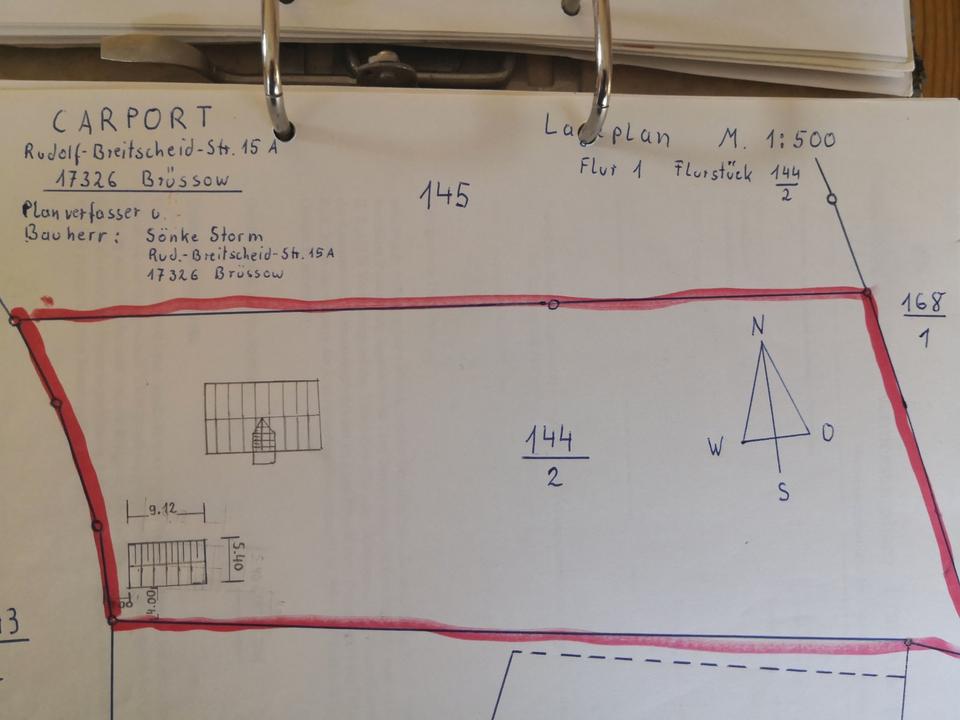 CARPORT
Rudolf-Breitscheid-Str. 15 A
17326 Brüssow
Planverfasser u.
Bauherr: Sönke Storm
Rud.-Breitscheid-Str. 15A
17326 Brüssow
Lageplan M. 1:500
Flur 1 Flurstück 144/2
145
168/1
N
W O
S
144/2
9.12
5.40
4.00